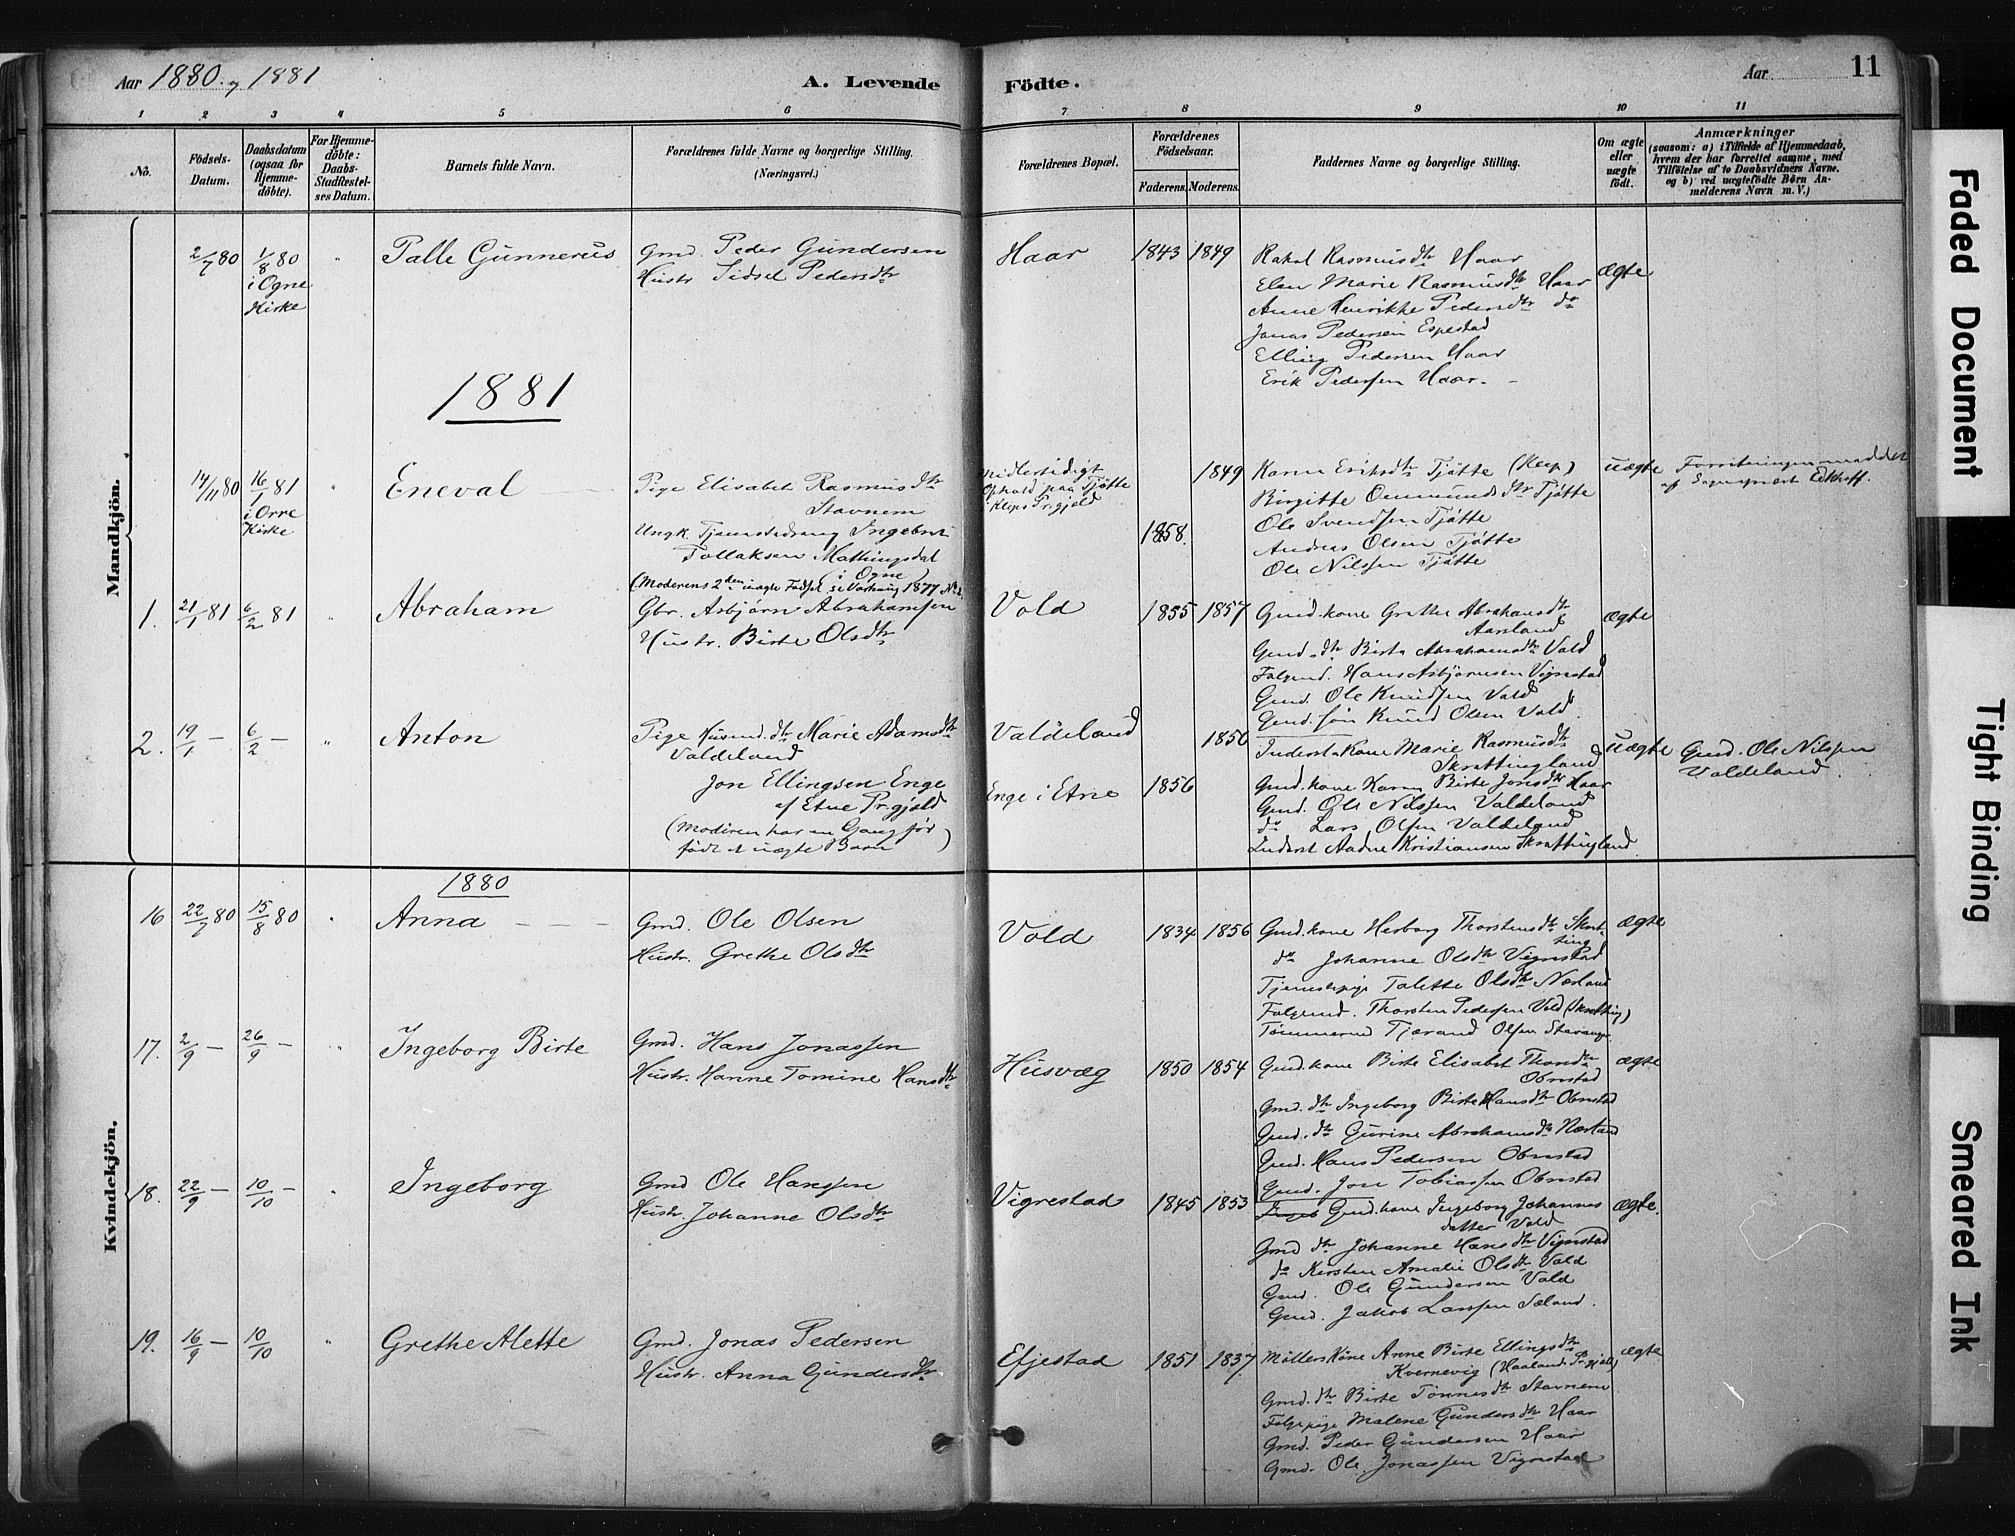 Aar 1880 og 1881
A. Levende
Födte.
Aar
11
1 2 3 4 5 6 7 8 9 10 11
No.
Födsels-
Datum.
Daabsdatum
(ogsaa for
Hjemme-
döbte).
For Hjemme-
döbte:
Daabs-
Stadfæstel-
ses Datum.
Barnets fulde Navn.
Forældrenes fulde Navne og borgerlige Stilling.
(Næringsvei.)
Forældrenes Bopæl.
Forældrenes
Födselsaar.
Faderens. Moderens.
Faddernes Navne og borgerlige Stilling.
Om ægte
eller
uægte
födt.
Anmærkninger
(saasom: a) i Tilfælde af Hjemmedaab,
hvem der har forrettet samme, med
Tilföielse af to Daabsvidners Navne.
og b) ved uægtefödte Börn An-
melderens Navn m. V.)
Mandkjön.
2/7 80
1/8 80
i Ogne
Kirke
"
Palle Gunnerius
Gmd. Peder Gundersen
Hustr Sidsel Pedersdtr
Haar
1843 1849
Rakel Rasmusdtr Haar
Elen Marie Rasmusdtr Haar
Anne Henrikke Pedersdtr do
Jonas Pedersen Espestad
Elling Pedersen Haar
Erik Pedersen Haar.
ægte
1881
14/11 80
16/1 81
i Orre
Kirke
"
Eneval
Pige Elisabet Rasmusdtr
Stavnem
Ungk. Ingebret
Tollaksen Mathingsdal
i Ogne
(Moderens 2den uægte Födsel se 1877 No
midlertidigt
Ophold paa Tjötte
i Kleps Prgjeld
1849
1858.
Karen Eriksdtr Tjötte (Klep)
Birgitte Ommundsdtr Tjötte
Ole Svendsen Tjötte
Andreas Olsen Tjötte
Ole Nilssen Tjötte
uægte
af Sogneprest Eckhoff.
1.
21/1 81
6/2 81
"
Abraham
Gbr. Asbjörn Abrahamsen
Hustr. Birte Olsdtr
Vold
1855 1857
Gmd. kone Grethe Abrahamsdtr
Aarsland
Gmd. dtr Birte Abrahamsdtr Vold
Folgmd. Hans Asbjörnsen Vigrestad
Gmd. Ole Knudsen Vold
Gmd. sön Knud Olsen Vold
ægte
2.
19/1 —
6/2 —
"
Anton
Pige Husmd. dtr Marie Adamsdtr
Valdeland
Jon Ellingsen Enge
af Etne Prgjeld
(Moderen har en Gang för
födt et uægte Barn)
Valdeland
Enge i Etne
1850
1856
Inderst. Kone Marie Rasmusdtr
Skrettingland
Gmd. kone Karen Birte Jonsdtr Haar
Gmd. Ole Nilssen Valdeland
do Lars Olsen Valdeland
Inderst Aadne Kristiansen Skrettingland
uægte
Gmd. Ole Nilssen
Valdeland.
Kvindekjön.
1880
16
22/7 80
15/8 80
"
Anna
Gmd. Ole Olsen
Hustr. Grethe Olsdtr
Vold
1834 1856
Gmd. kone Herborg Thorstensdtr Skret-
ting
do Johanne Olsdtr Vigrestad
Tjenestepige Talette Olsdtr Nærland
Folgemd. Thorsten Pedersen Vold (Skretting)
Tömmermd Tjærand Olsen Stavanger
ægte
17.
2/9 —
26/9 —
"
Ingeborg Birte
Gmd. Hans Jonassen
Hustr. Hanne Tomine Hansdtr
Husvæg
1850 1854
Gmd. kone Birte Elisabet Thorsdtr
Obrestad
Gmd. dtr Ingeborg Birte Hansdtr Obrestad
Gmd. dtr Gurine Abrahamsdtr Nærland
Gmd. Hans Pedersen Obrestad
Gmd. Jon Tobiassen Obrestad
ægte
18.
22/9 —
10/10 —
"
Ingeborg
Gmd Ole Hanssen
Hustr. Johanne Olsdtr
Vigrestad
1845 1853
Gmd. kone Ingeborg Johannes
datter Vold
Gmd dtr Johanne Hansdtr Vigrestad
do Kirsten Amalie Olsdtr Vold
Gmd. Ole Gundersen Vold
Gmd. Jakob Larssen Sæland.
ægte.
19.
16/9 —
10/10
"
Grethe Alette
Gmd. Jonas Pedersen
Hustr. Anna Gundersdtr
Efjestad
1851 1837
Möllers Kone Anne Birte Ellingsdtr
Kvernevig (Haalands Prgjeld)
Gmd. dtr Birte Tönnesdtr Stavnem
Folgepige Malene Gundersdtr Haar
Gmd. Peder Gundersen Haar
Gmd. Ole Jonassen Vigrestad
ægte
Faded Document
Tight Binding
Smeared Ink